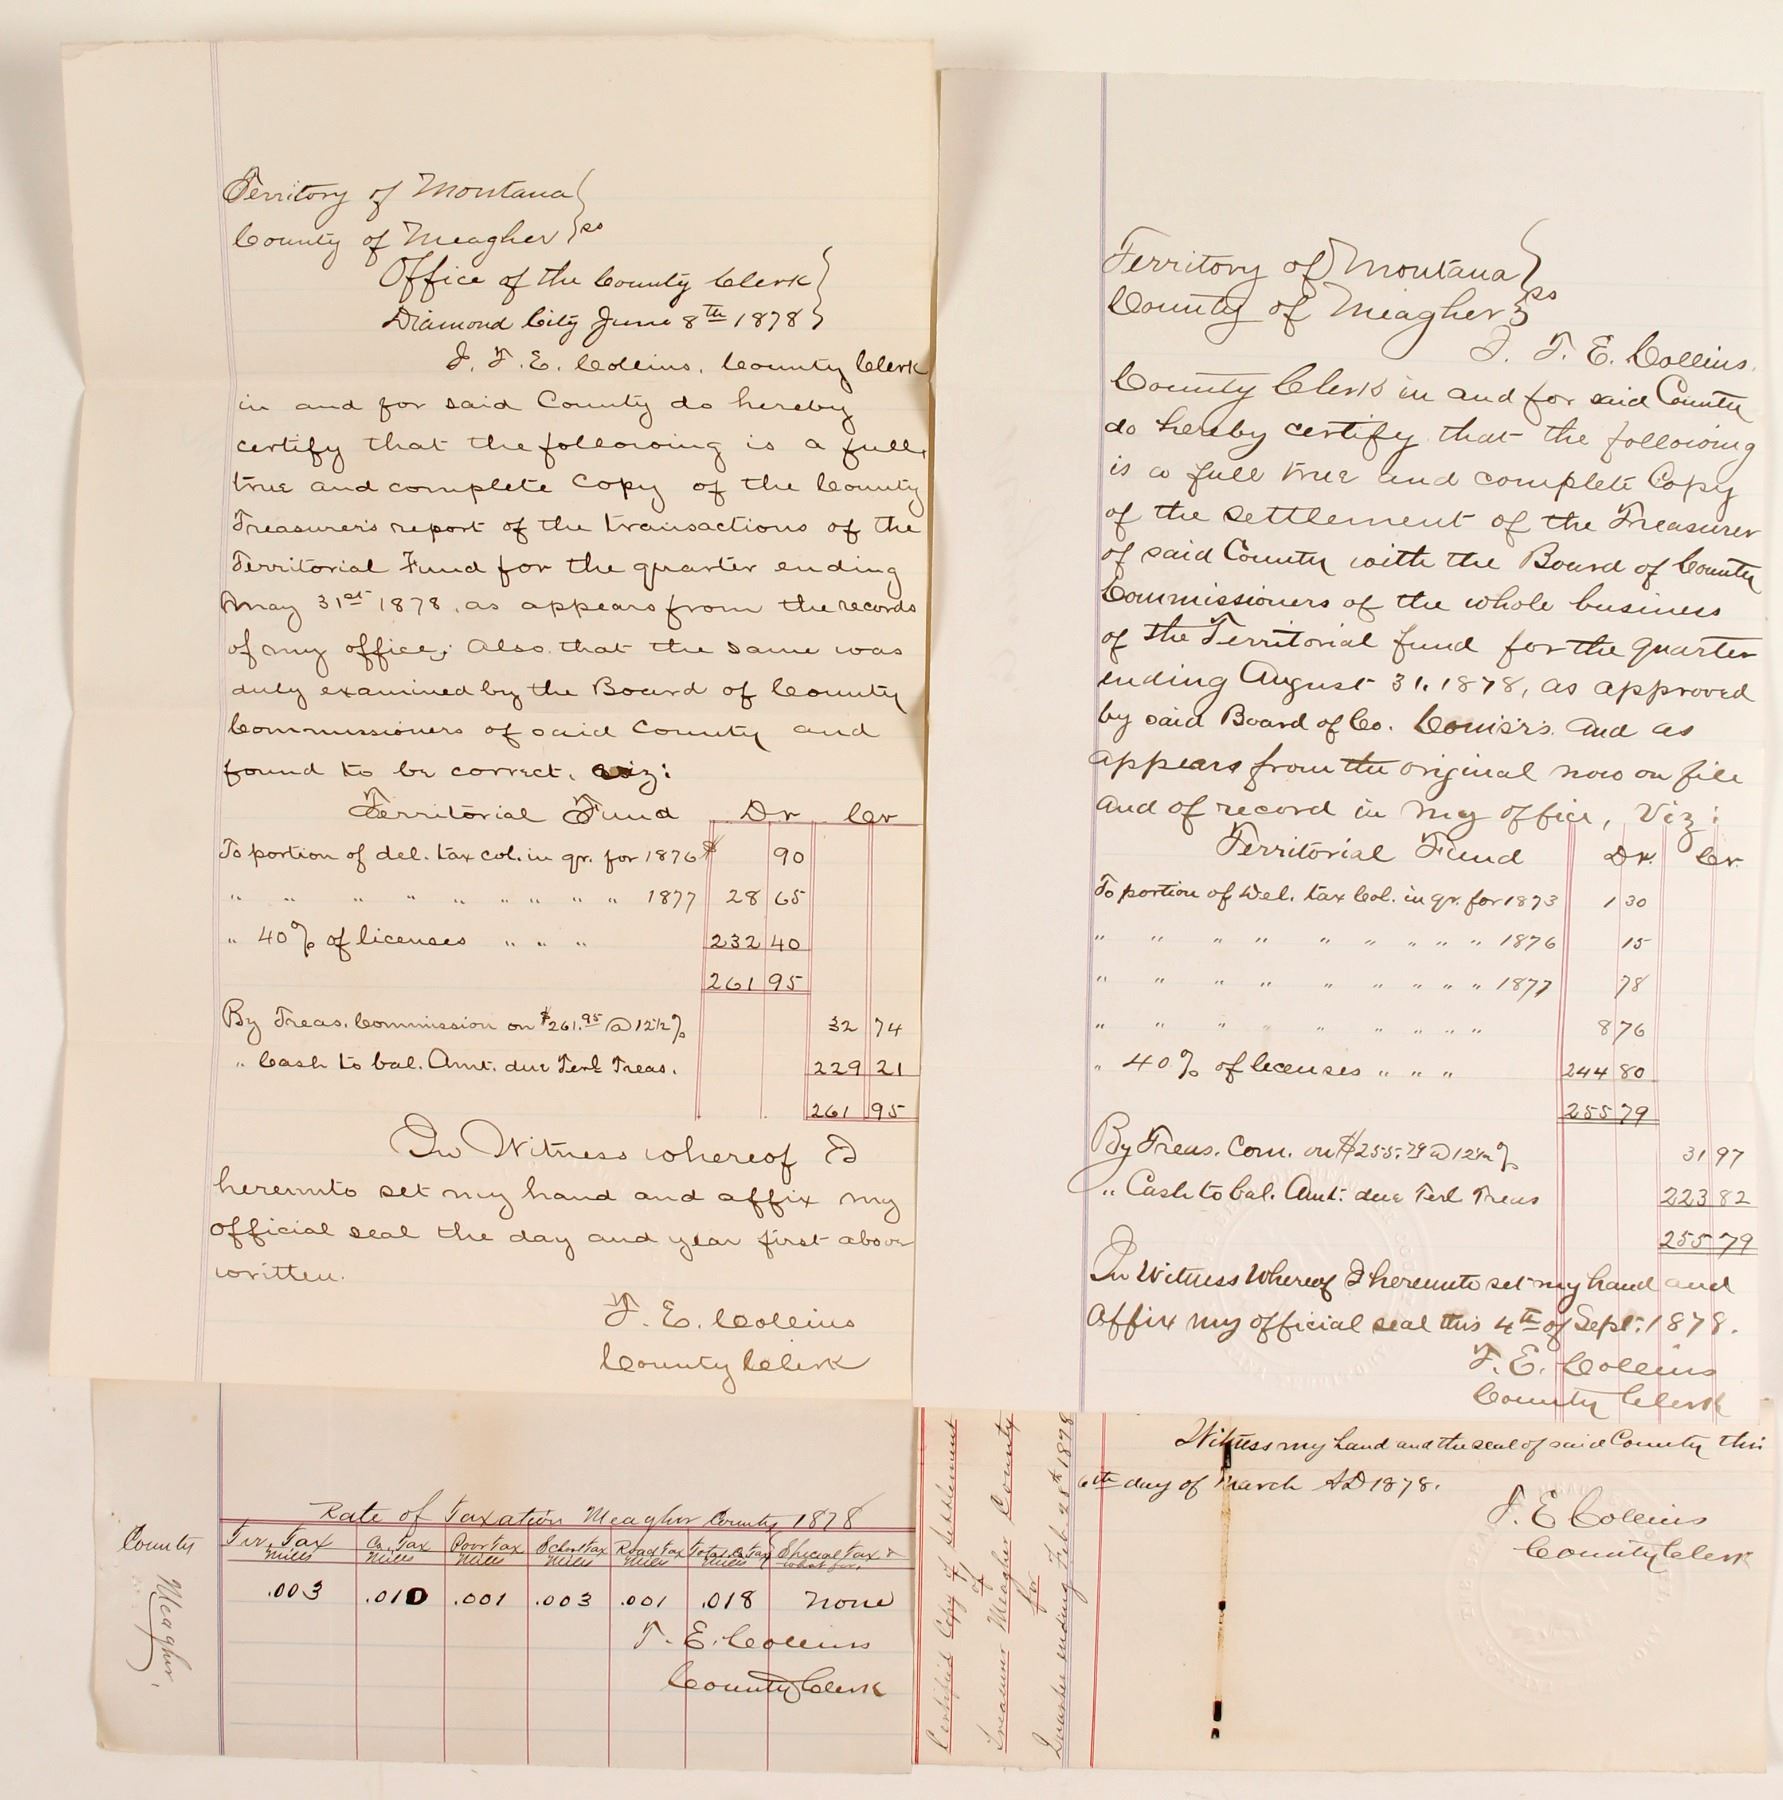 Territory of Montana }
County of Meagher } ss
Office of the County Clerk }
Diamond City June 8th 1878 }
I. T. E. Collins, County Clerk
in and for said County do hereby
certify that the following is a full,
true and complete Copy of the County
Treasurer's report of the transactions of the
Territorial Fund for the quarter ending
May 31st 1878, as appears from the records
of my office; Also that the same was
duly examined by the Board of County
Commissioners of said County and
found to be correct, viz:
Territorial Fund Dr Cr
To portion of del. tax col. in qr. for 1876 $ 90
" " " " " " " " " 1877 28 65
" 40% of licenses " " " 232 40
261 95
By Treas. Commission on $261.95 @ 12½% 32 74
" Cash to bal. Amt. due Terl Treas. 229 21
261 95
In Witness whereof I
hereunto set my hand and affix my
official seal the day and year first above
written.
T. E. Collins
County Clerk
Territory of Montana }
County of Meagher } ss
I. T. E. Collins,
County Clerk in and for said County
do hereby certify that the following
is a full true and complete Copy
of the settlement of the Treasurer
of said County with the Board of County
Commissioners of the whole business
of the Territorial fund for the quarter
ending August 31. 1878, as approved
by said Board of Co. Comis'rs. and as
appears from the original now on file
and of record in my office, Viz:
Territorial Fund Dr. Cr.
To portion of Del. tax Col. in qr. for 1873 1 30
" " " " " " " " " 1876 15
" " " " " " " " " 1877 78
" " " " " " " " " 8 76
" 40% of licenses " " " 244 80
255 79
By Treas. Com. on $255.79 @ 12½% 31 97
" Cash to bal. Amt. due Terl Treas 223 82
255 79
In Witness Whereof I hereunto set my hand and
Affix my official seal this 4th of Sept. 1878.
T. E. Collins
County Clerk
County Meagher.
Rate of Taxation Meagher County 1878
Ter. Tax Mills Co. Tax Mills Poor tax Mills School tax Mills Road tax Mills Total Co tax Mills Special tax & what for.
.003 .010 .001 .003 .001 .018 None
T. E. Collins
County Clerk
Certified Copy of Settlement
of
Treasurer Meagher County
for
Quarter ending Feb. 28th 1878
Witness my hand and the seal of said County this
6th day of March AD 1878.
T. E Collins
County Clerk